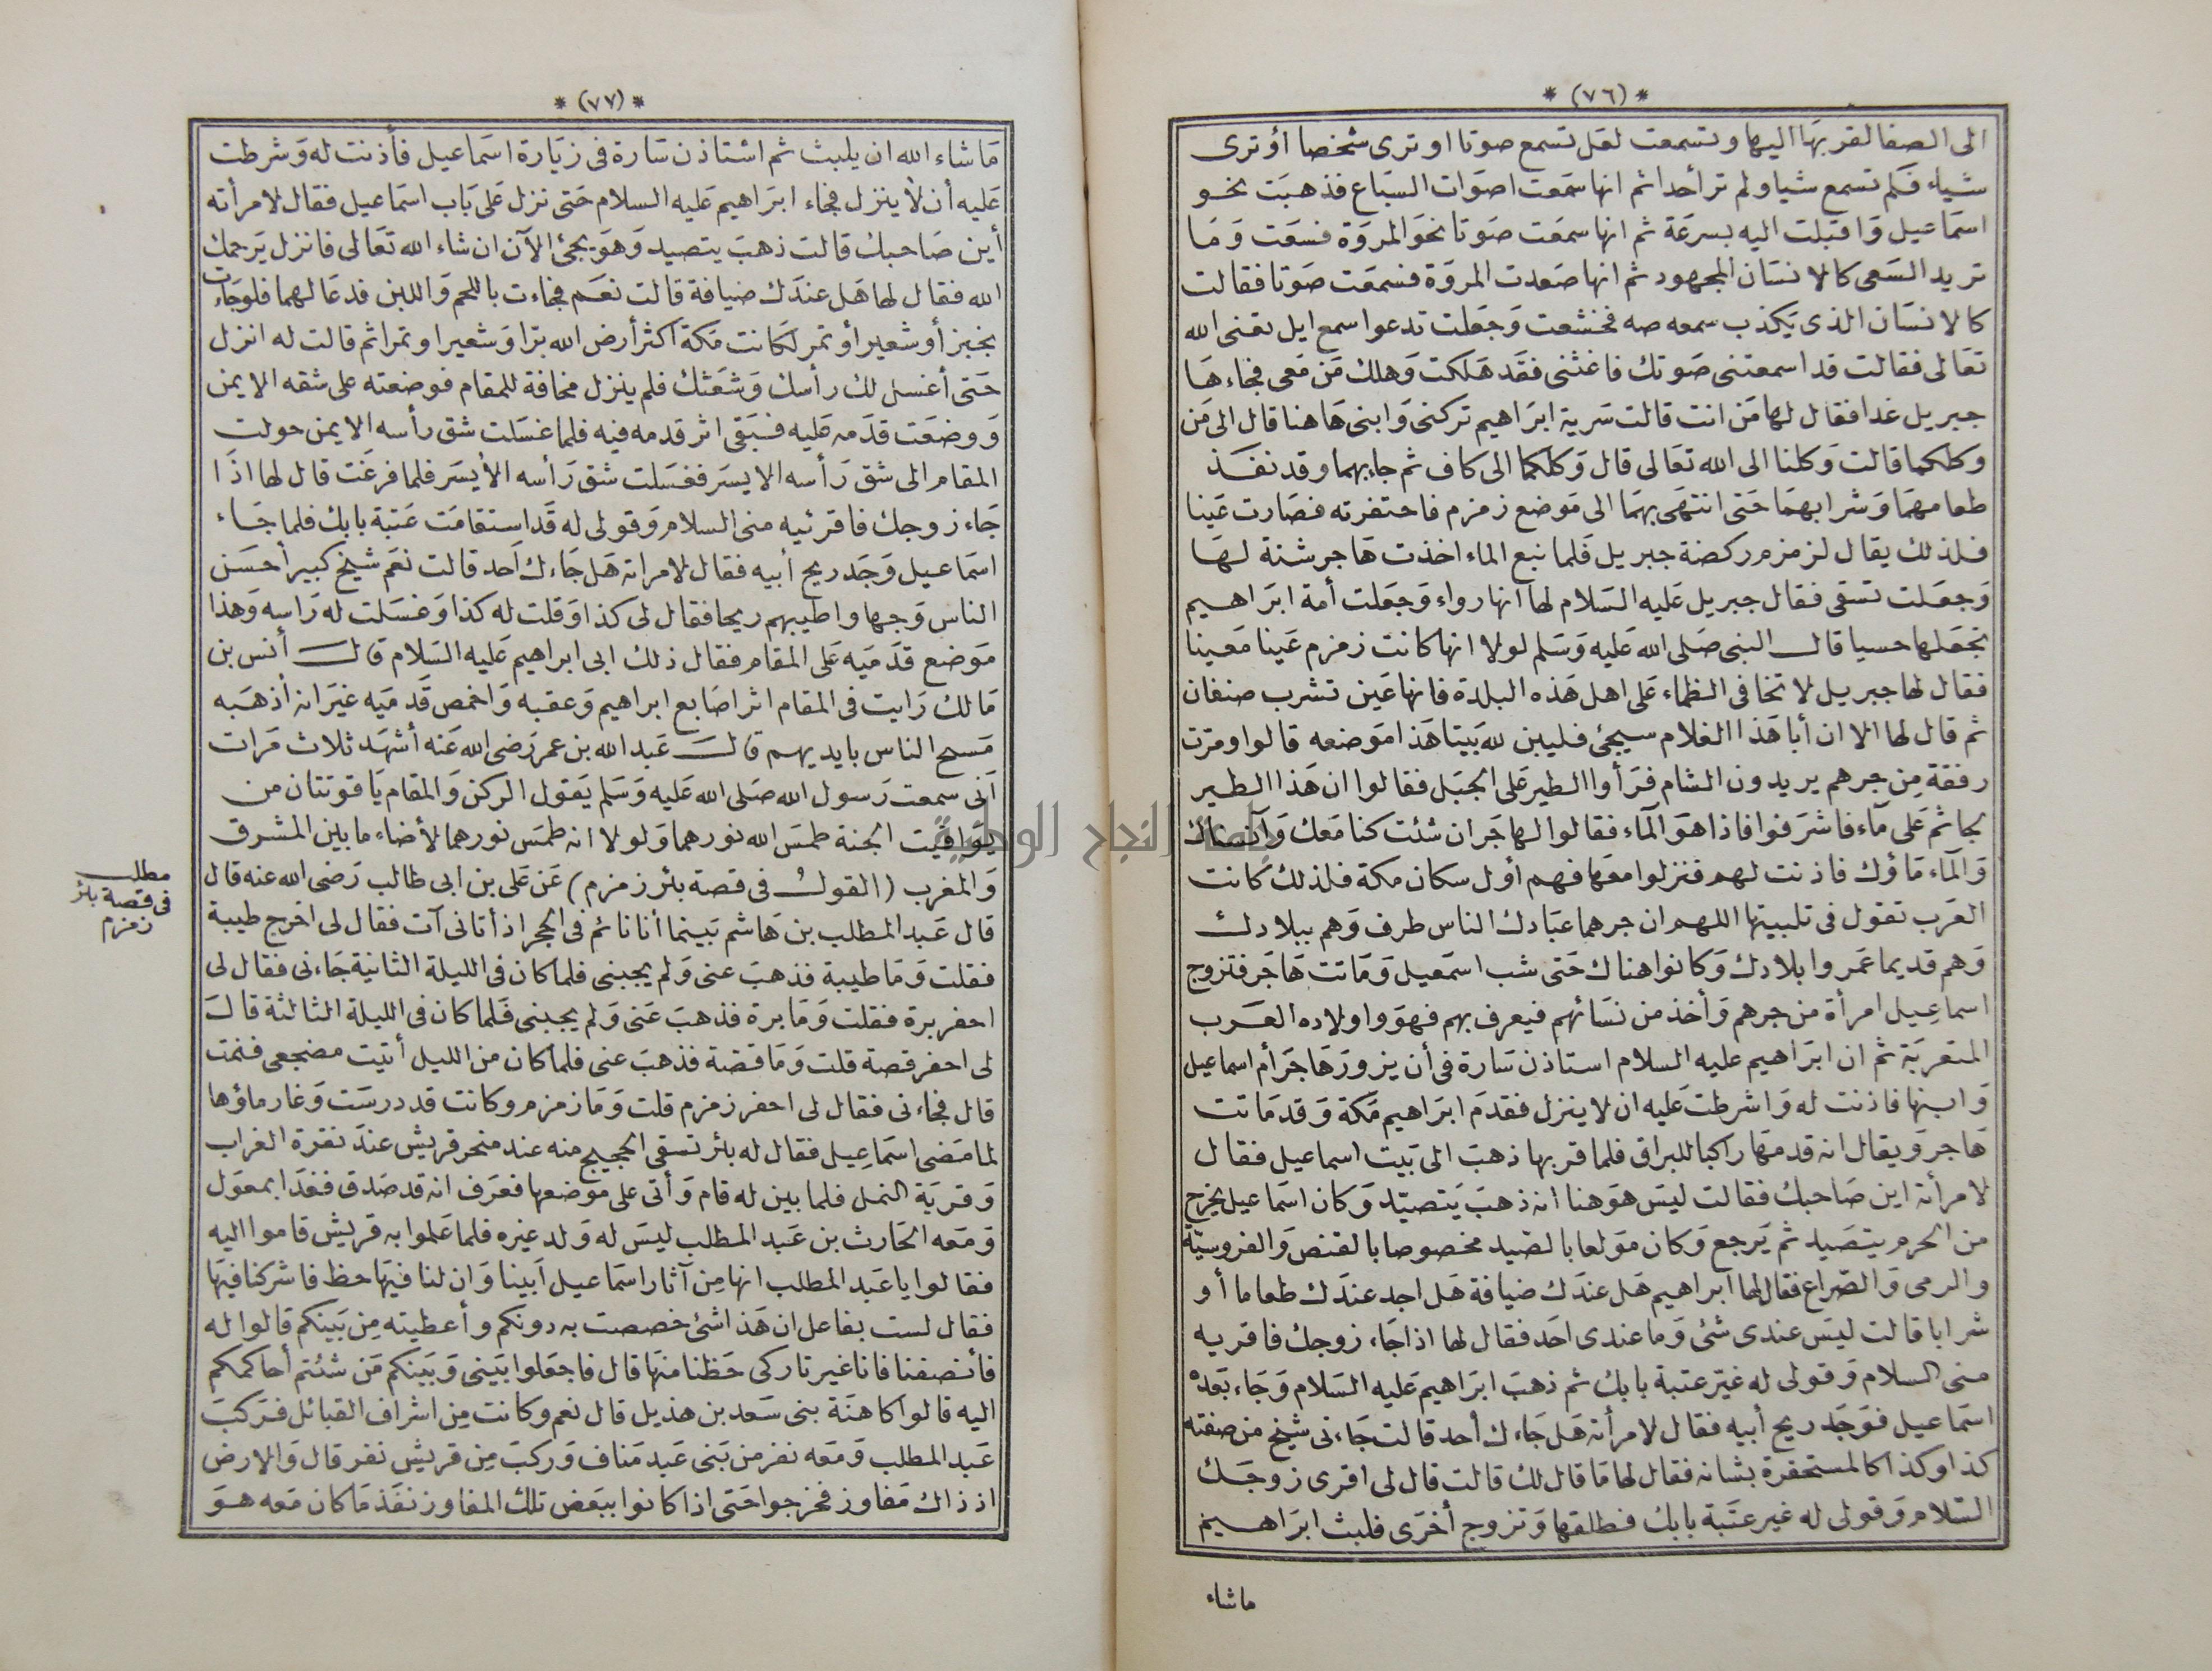 *(٧٦)*
الى الصفا لقربها اليها وتسمعت لعل تسمع صوتا او ترى شخصا أو ترى
شياء فلم تسمع شيا ولم تر أحدا ثم انها سمعت اصوات السباع فذهبت نحو
اسماعيل واقبلت اليه بسرعة ثم انها سمعت صوتا نحو المروة فسعت وما
تريد السعى كالانسان المجهود ثم انها صعدت المروة فسمعت صوتا فقالت
كالانسان الذى يكذب سمعه صه فخشعت وجعلت تدعوا سمع ايل تعنى الله
تعالى فقالت قد اسمعتنى صوتك فاغثنى فقد هلكت وهلك من معى فجاءها
جبريل غدا فقال لها من انت قالت سرية ابراهيم تركنى وابنى هاهنا قال الى من
وكلكما قالت وكلنا الى الله تعالى قال وكلكما الى كاف ثم جاء بهما وقد نفذ
طعامهما وشرابهما حتى انتهى بهما الى موضع زمزم فاحتفرته فصارت عينا
فلذلك يقال لزمزم ركضة جبريل فلما نبع الماء اخذت هاجر شنة لها
وجعلت تسقى فقال جبريل عليه السلام لها انها رواء وجعلت أمة ابراهيم
تجعلها حسيا قال النبى صلى الله عليه وسلم لولا انها كانت زمزم عينا معينا
فقال لها جبريل لا تخافى الظماء على اهل هذه البلدة فانها عين تشرب ضيفان
ثم قال لها الا ان أبا هذا الغلام سيجئ فليبن لله بيتا هذا موضعه قالوا ومرت
رفقة من جرهم يريدون الشام فرأوا الطير على الجبل فقالوا ان هذا الطير
لجاثم على ماء فاشرفوا فاذا هو الماء فقالوا لهاجر ان شئت كنا معك وآنسناك
والماء ماؤك فاذنت لهم فنزلوا معها فهم أول سكان مكة فلذلك كانت
العرب تقول فى تلبيتها اللهم ان جرهما عبادك الناس طرف وهم ببلادك
وهم قديما عمروا بلادك وكانوا هناك حتى شب اسمعيل وماتت هاجر فتزوج
اسماعيل امرأة من جرهم وأخذ من نسائهم فيعرف بهم فهو واولاده العرب
المتعربة ثم ان ابراهيم عليه السلام استاذن سارة فى أن يزور هاجر أم اسماعيل
وابنها فاذنت له واشرطت عليه ان لا ينزل فقدم ابراهيم مكة وقد ماتت
هاجر ويقال انه قدمها راكبا للبراق فلما قربها ذهب الى بيت اسماعيل فقال
لامرأته اين صاحبك فقالت ليس هو هنا انه ذهب يتصيد وكان اسماعيل يخرج
من الحرم يتصيد ثم يرجع وكان مولعا بالصيد مخصوصا بالقنص والفروسية
والرمى والصراع فقال لها ابراهيم هل عندك ضيافة هل اجد عندك طعاما أو
شرابا قالت ليس عندى شئ وما عندى احد فقال لها اذا جاء زوجك فاقريه
منى السلام وقولى له غير عتبة بابك ثم ذهب ابراهيم عليه السلام وجاء بعده
اسماعيل فوجد ريح أبيه فقال لامرأته هل جاءك أحد قالت جاءنى شيخ من صفته
كذا وكذا كالمستحقرة بشانه فقال لها ما قال لك قالت قال لى اقرى زوجك
السلام وقولى له غير عتبة بابك فطلقها وتزوج أخرى فلبث ابراهيم
ماشاء
*(٧٧)*
ماشاء الله ان يلبث ثم استاذن سارة فى زيارة اسماعيل فأذنت له وشرطت
عليه أن لا ينزل فجاء ابراهيم عليه السلام حتى نزل على باب اسماعيل فقال لامرأته
أين صاحبك قالت ذهب يتصيد وهو يجئ الآن ان شاء الله تعالى فانزل يرحمك
الله فقال لها هل عندك ضيافة قالت نعم فجاءت باللحم واللبن فدعا لهما فلو جاءت
بخبز أو شعير أو تمر لكانت مكة اكثر أرض الله برا وشعيرا وتمرا ثم قالت له انزل
حتى أغسل لك رأسك وشعثك فلم ينزل مخافة للمقام فوضعته على شقه الايمن
ووضعت قدمه عليه فبقى اثر قدمه فيه فلما غسلت شق رأسه الايمن حولت
المقام الى شق رأسه الايسر فغسلت شق رأسه الأيسر فلما فرغت قال لها اذا
جاء زوجك فاقرئيه منى السلام وقولى له قد استقامت عتبة بابك فلما جاء
اسماعيل وجد ريح أبيه فقال لامراته هل جاءك أحد قالت نعم شيخ كبير أحسن
الناس وجها واطيبهم ريحا فقال لى كذا وقلت له كذا وغسلت له راسه وهذا
موضع قدميه على المقام فقال ذلك ابى ابراهيم عليه السلام قال أنس بن
مالك رايت فى المقام اثر اصابع ابراهيم وعقبه واخمص قدميه غير انه أذهبه
مسح الناس بايديهم قال عبد الله بن عمر رضى الله عنه أشهد ثلاث مرات
انى سمعت رسول الله صلى الله عليه وسلم يقول الركن والمقام ياقوتتان من
يواقيت الجنة طمس الله نورهما ولولا انه طمس نورهما لأضاء ما بين المشرق
والمغرب (القول فى قصة بئر زمزم) عن على بن ابى طالب رضى الله عنه قال
مطلب
فى قصة بئر
زمزم
قال عبد المطلب بن هاشم بينما أنا نائم فى الحجر اذ أتانى آت فقال لى اخرج طيبة
فقلت وما طيبة فذهب عنى ولم يجبنى فلما كان فى الليلة الثانية جاءنى فقال لى
احفر برة فقلت وما برة فذهب عنى ولم يجبنى فلما كان فى الليلة الثالثة قال
لى احفر قصة قلت وما قصة فذهب عنى فلما كان من الليل أتيت مضجعى فنمت
قال فجاءنى فقال لى احفر زمزم قلت وما زمزم وكانت قد درست وغار ماؤها
لما مضى اسماعيل فقال له بئر تسقى الحجيج منه عند منحر قريش عند نقرة الغراب
وقرية النمل فلما بين له قام وأتى على موضعها فعرف انه قد صدق فغدا بمعول
ومعه الحارث بن عبد المطلب ليس له ولد غيره فلما علموا به قريش قاموا اليه
فقالوا يا عبد المطلب انها من آثار اسماعيل أبينا وان لنا فيها حظ فاشركنا فيها
فقال لست بفاعل ان هذا شئ خصصت به دونكم وأعطيته من بينكم قالوا له
فأنصفنا فانا غير تاركى حظنا منها قال فاجعلوا بينى وبينكم من شئتم أحاكمكم
اليه قالوا كاهنة بنى سعد بن هذيل قال نعم وكانت من اشراف القبائل فركب
عبد المطلب ومعه نفر من بنى عبد مناف وركب من قريش نفر قال والارض
اذ ذاك مفاوز فخرجوا حتى اذا كانوا ببعض تلك المفاوز نفذ ما كان معه هو
جامعة النجاح الوطنية